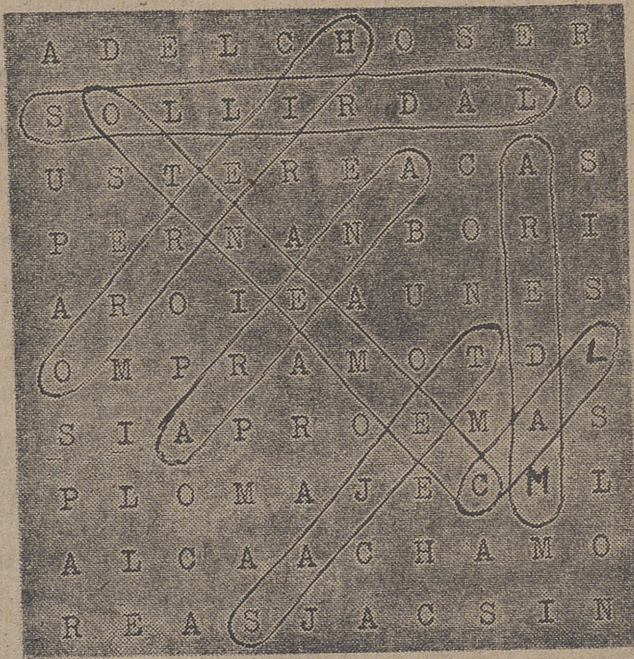 A D E L C H O S E R
S O L L I R D A L O
U S T E R E A C A S
P E R N A N B O R I
A R O I E A U N E S
O M P R A M O T D L
S I A P R O E M A S
P L O M A J E C M L
A L C A A C H A M O
R E A S J A C S I N